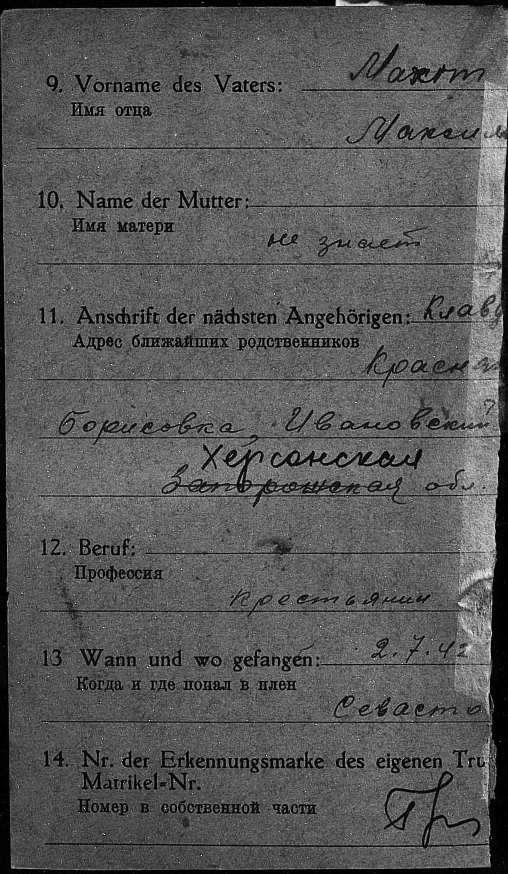 9. Vorname des Vaters:
Имя отца
Максим
10. Name der Mutter:
Имя матери
не знает
11. Anschrift der nächsten Angehörigen: Клавд
Адрес ближайших родственников
Красная
Борисовка, Ивановский
Херсонская
Запорожская обл.
12. Beruf:
Профессия
крестьянин
13 Wann und wo gefangen: 2.7.42
Когда и где попал в плен
Севасто
14. Nr. der Erkennungsmarke des eigenen Tru
Matrikel-Nr.
Номер в собственной части